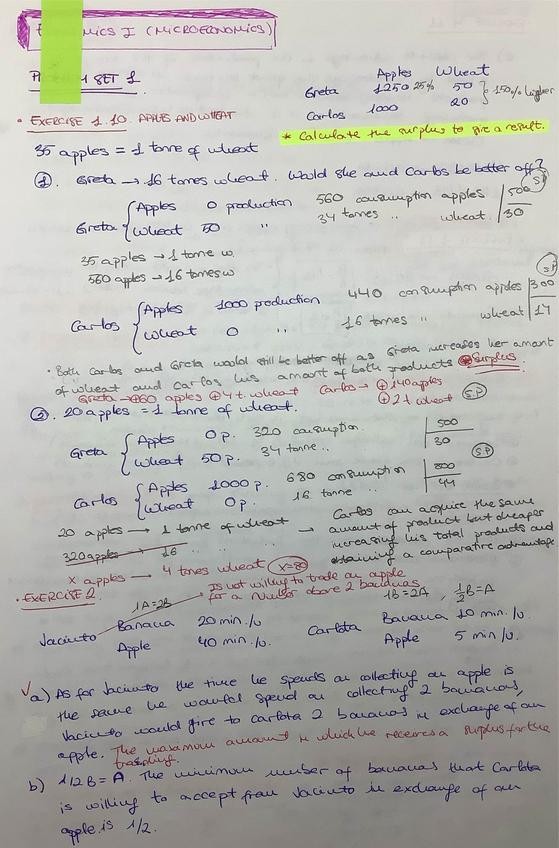 MICS I (MICROECONOMICS)
SET 1
Apples Wheat
Greta 1250 25% 50
150% higher
Carlos 1000 20
• EXERCISE 1.10. APPLES AND WHEAT
* Calculate the surplus to give a result.
35 apples = 1 tonne of wheat
①. Greta → 16 tonnes wheat. Would she and Carlos be better off?
Greta { Apples 0 production 560 consumption apples 500
Wheat 50 " 34 tonnes " wheat 30
SP
35 apples → 1 tonne w.
560 apples → 16 tonnes w
Carlos { Apples 1000 production 440 consumption apples 300
Wheat 0 " 16 tonnes " wheat 14
SP
• Both Carlos and Greta would still be better off as Greta increases her amount
of wheat and Carlos his amount of both products * Surplus
Greta → +60 aples +4 t. wheat Carlos → + 140 apples
+ 2 t wheat S.P
②. 20 apples = 1 tonne of wheat.
Greta { Apples 0 p. 320 consumption. 500
Wheat 50 p. 34 tonne.. 30
S.P
Carlos { Apples 1000 p. 680 consumption
Wheat 0 p. 16 tonne " 44
20 apples → 1 tonne of wheat → Carlos can acquire the same
amount of product but cheaper
320 apples → 16 " " " increasing his total products and
obtaining a comparative advantage
x apples → 4 tones wheat x=80
• EXERCISE 2.
Is not willing to trade an apple
for a number above 2 bananas
1A=2B 1B=2A, 1/2B=A
Jacinto Banana 20 min./u. Carlota Banana 10 min./u.
Apple 40 min./u. Apple 5 min/u.
✓ a) As for Jacinto the time he spends on collecting an apple is
the same he would spend on collecting 2 bananas,
Jacinto would give to Carlota 2 bananas in exchange of an
apple. The maximum amount in which he receives a surplus for the
trading.
b) 1/2 B = A. The minimum number of bananas that Carlota
is willing to accept from Jacinto in exchange of an
apple is 1/2.